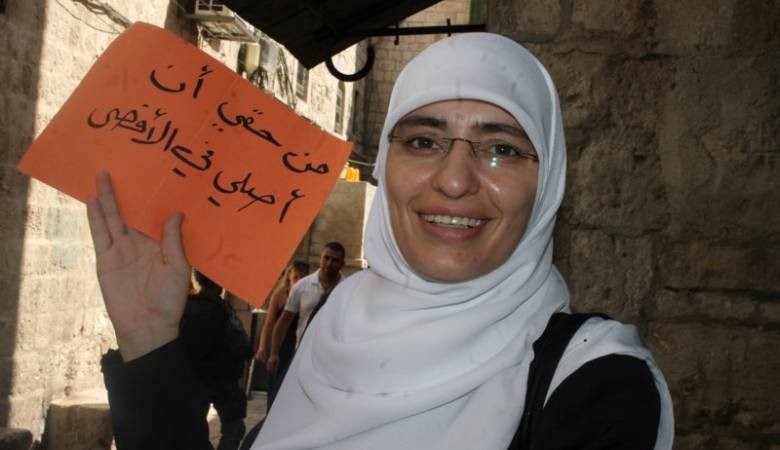 من حقي أن
أصلي في الأقصى